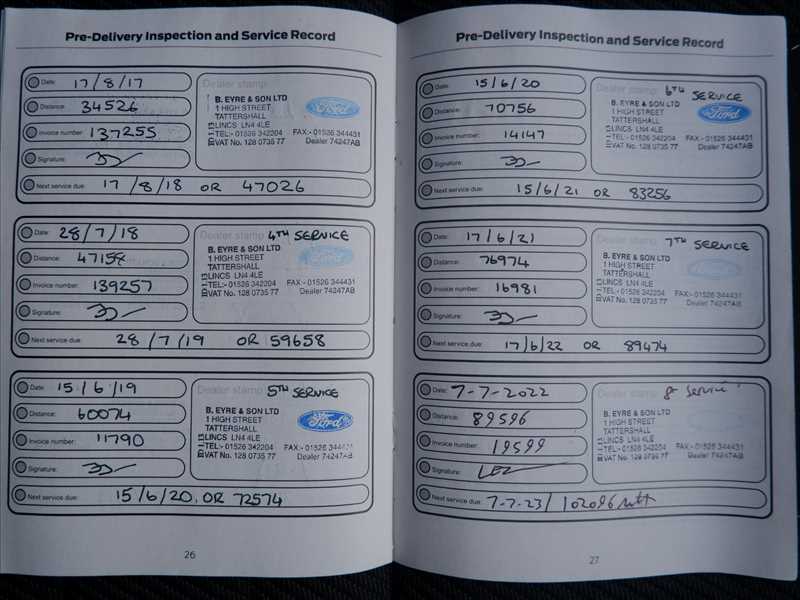 Pre-Delivery Inspection and Service Record
Date: 17/8/17
Distance: 34526
Invoice number: 137255
Signature:
Next service due: 17/8/18 OR 47026
Dealer stamp
B. EYRE & SON LTD
1 HIGH STREET
TATTERSHALL
LINCS LN4 4LE
TEL:- 01526 342204 FAX:- 01526 344431
VAT No. 128 0735 77 Dealer 74247AB
Ford
Date: 28/7/18
Distance: 47158
Invoice number: 139257
Signature:
Next service due: 28/7/19 OR 59658
Dealer stamp 4TH SERVICE
B. EYRE & SON LTD
1 HIGH STREET
TATTERSHALL
LINCS LN4 4LE
TEL:- 01526 342204 FAX:- 01526 344431
VAT No. 128 0735 77 Dealer 74247AB
Ford
Date: 15/6/19
Distance: 60074
Invoice number: 11790
Signature:
Next service due: 15/6/20 OR 72574
Dealer stamp 5TH SERVICE
B. EYRE & SON LTD
1 HIGH STREET
TATTERSHALL
LINCS LN4 4LE
TEL:- 01526 342204 FAX:- 01526 344431
VAT No. 128 0735 77 Dealer 74247AB
Ford
26
Pre-Delivery Inspection and Service Record
Date: 15/6/20
Distance: 70756
Invoice number: 14147
Signature:
Next service due: 15/6/21 OR 83256
Dealer stamp 6TH SERVICE
B. EYRE & SON LTD
1 HIGH STREET
TATTERSHALL
LINCS LN4 4LE
TEL:- 01526 342204 FAX:- 01526 344431
VAT No. 128 0735 77 Dealer 74247AB
Ford
Date: 17/6/21
Distance: 76974
Invoice number: 16981
Signature:
Next service due: 17/6/22 OR 89474
Dealer stamp 7TH SERVICE
B. EYRE & SON LTD
1 HIGH STREET
TATTERSHALL
LINCS LN4 4LE
TEL:- 01526 342204 FAX:- 01526 344431
VAT No. 128 0735 77 Dealer 74247AB
Ford
Date: 7-7-2022
Distance: 89596
Invoice number: 19599
Signature:
Next service due: 7-7-23/ 102096
Dealer stamp 8 Service
B. EYRE & SON LTD
1 HIGH STREET
TATTERSHALL
LINCS LN4 4LE
TEL:- 01526 342204 FAX:- 01526 344431
VAT No. 128 0735 77 Dealer 74247AB
27